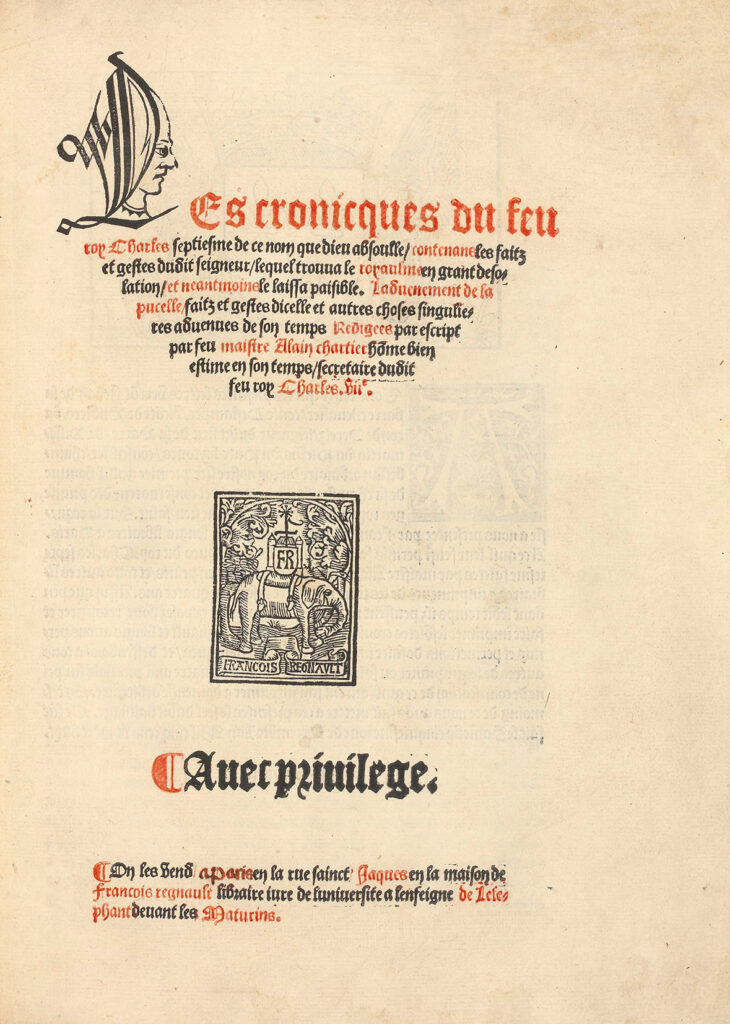 LEs cronicques du feu
roy Charles septiesme de ce nom que dieu absoulle/ contenans les faitz
et gestes dudit seigneur/ lequel trouua le royaulme en grant deso-
lation/ et neantmoins le laissa paisible. Laduenement de la
pucelle/ faitz et gestes dicelle et autres choses singulie-
res aduenues de son temps Redigees par escript
par feu maistre Alain chartier hõme bien
estime en son temps/ secretaire dudit
feu roy Charles. vii.
FR
FRANCOIS REGNAULT
¶ Auec priuilege.
¶ On les vend a Paris en la rue sainct Jaques en la maison de
Francois regnault libraire iure de luniuersite a lenseigne de Lele-
phant deuant les Maturins.